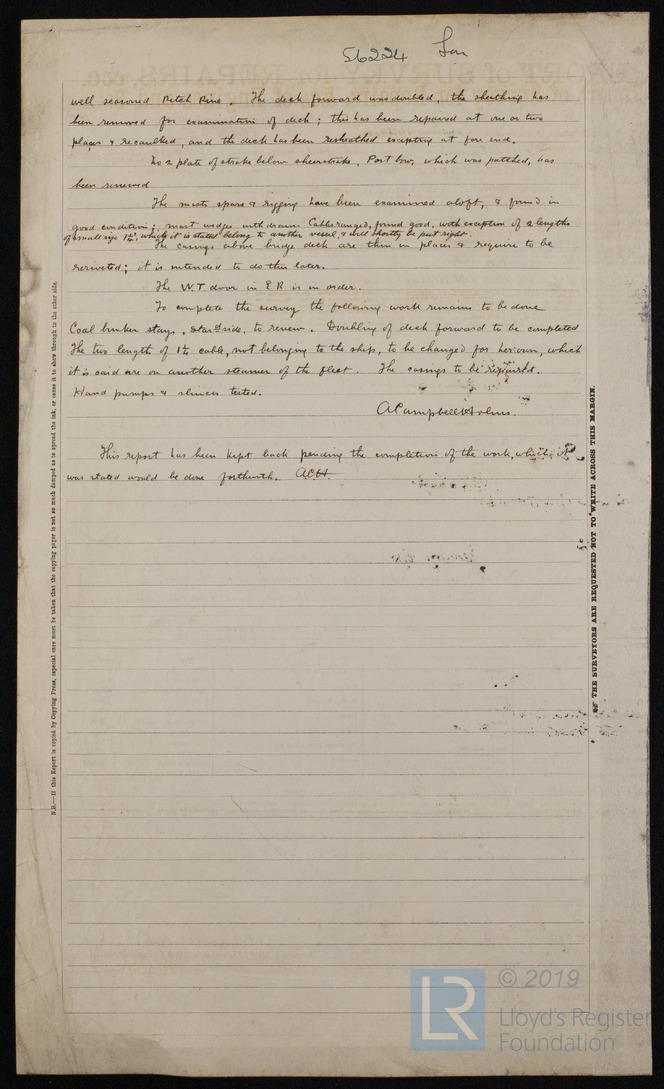 56224 Lon
well seasoned Pitch Pine. The deck forward was doubled, the sheathing has
been removed for examination of deck; this has been repaired at one or two
places & recaulked, and the deck has been resheathed excepting at fore end.
No 2 plate of strake below sheerstrake, Port bow, which was patched, has
been renewed
The masts spars & rigging have been examined aloft, & found in
good condition; mast wedges withdrawn Cables ranged, found good, with exception of 2 lengths
of small size 1 which it is stated belong to another vessel, & will shortly be put right.
The casings above bridge deck are thin in places & require to be
reriveted; it is intended to do this later.
The W.T door in E R is in order.
To complete the survey the following work remains to be done
Coal bunker stays, Starbd side, to renew. Doubling of deck forward to be completed
The two length of 1 cable, not belonging to the ship, to be changed for her own, which
it is said are on another steamer of the fleet. The casings to be repaired.
Hand pumps & sluices tested.
A Campbell Holms.
This report has been kept back pending the completion of the work, which it
was stated would be done forthwith. ACH.
N.B.—If this Report is copied by Copying Press, especial care must be taken that the copying paper is not so much damped as to spread the ink, or cause it to show through to the other side.
THE SURVEYORS ARE REQUESTED NOT TO WRITE ACROSS THIS MARGIN.
LR
© 2019
Lloyd's Register
Foundation